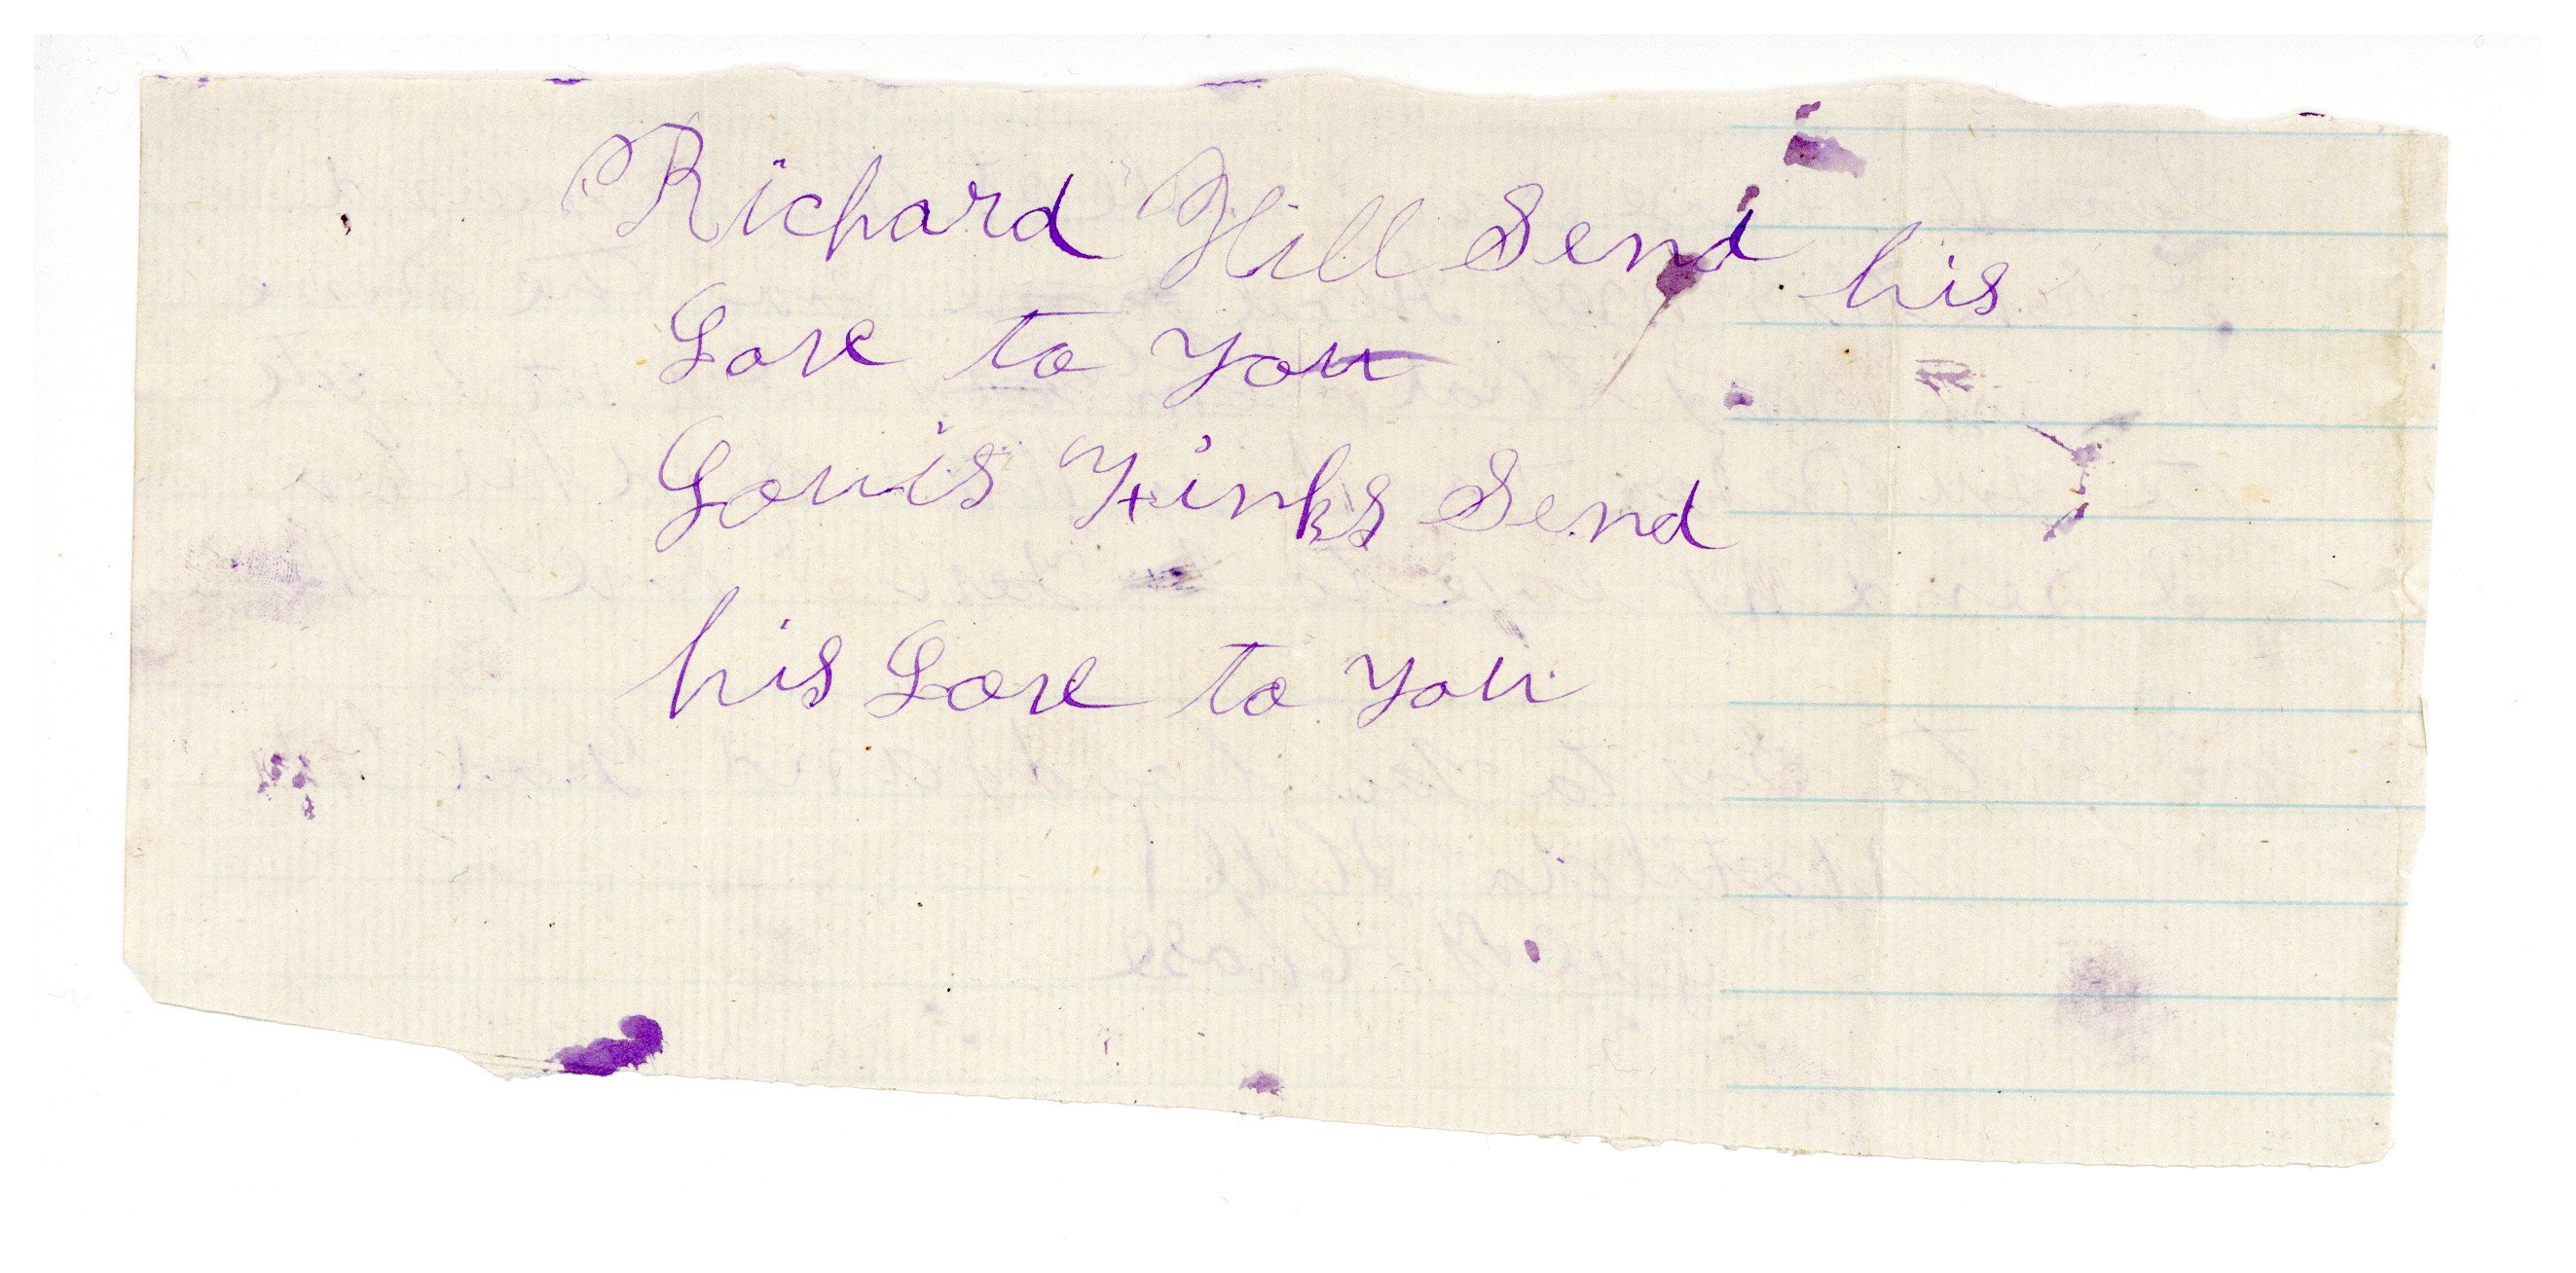 Richard Hill Send his
Love to you
Louis Finks Send
his Love to you